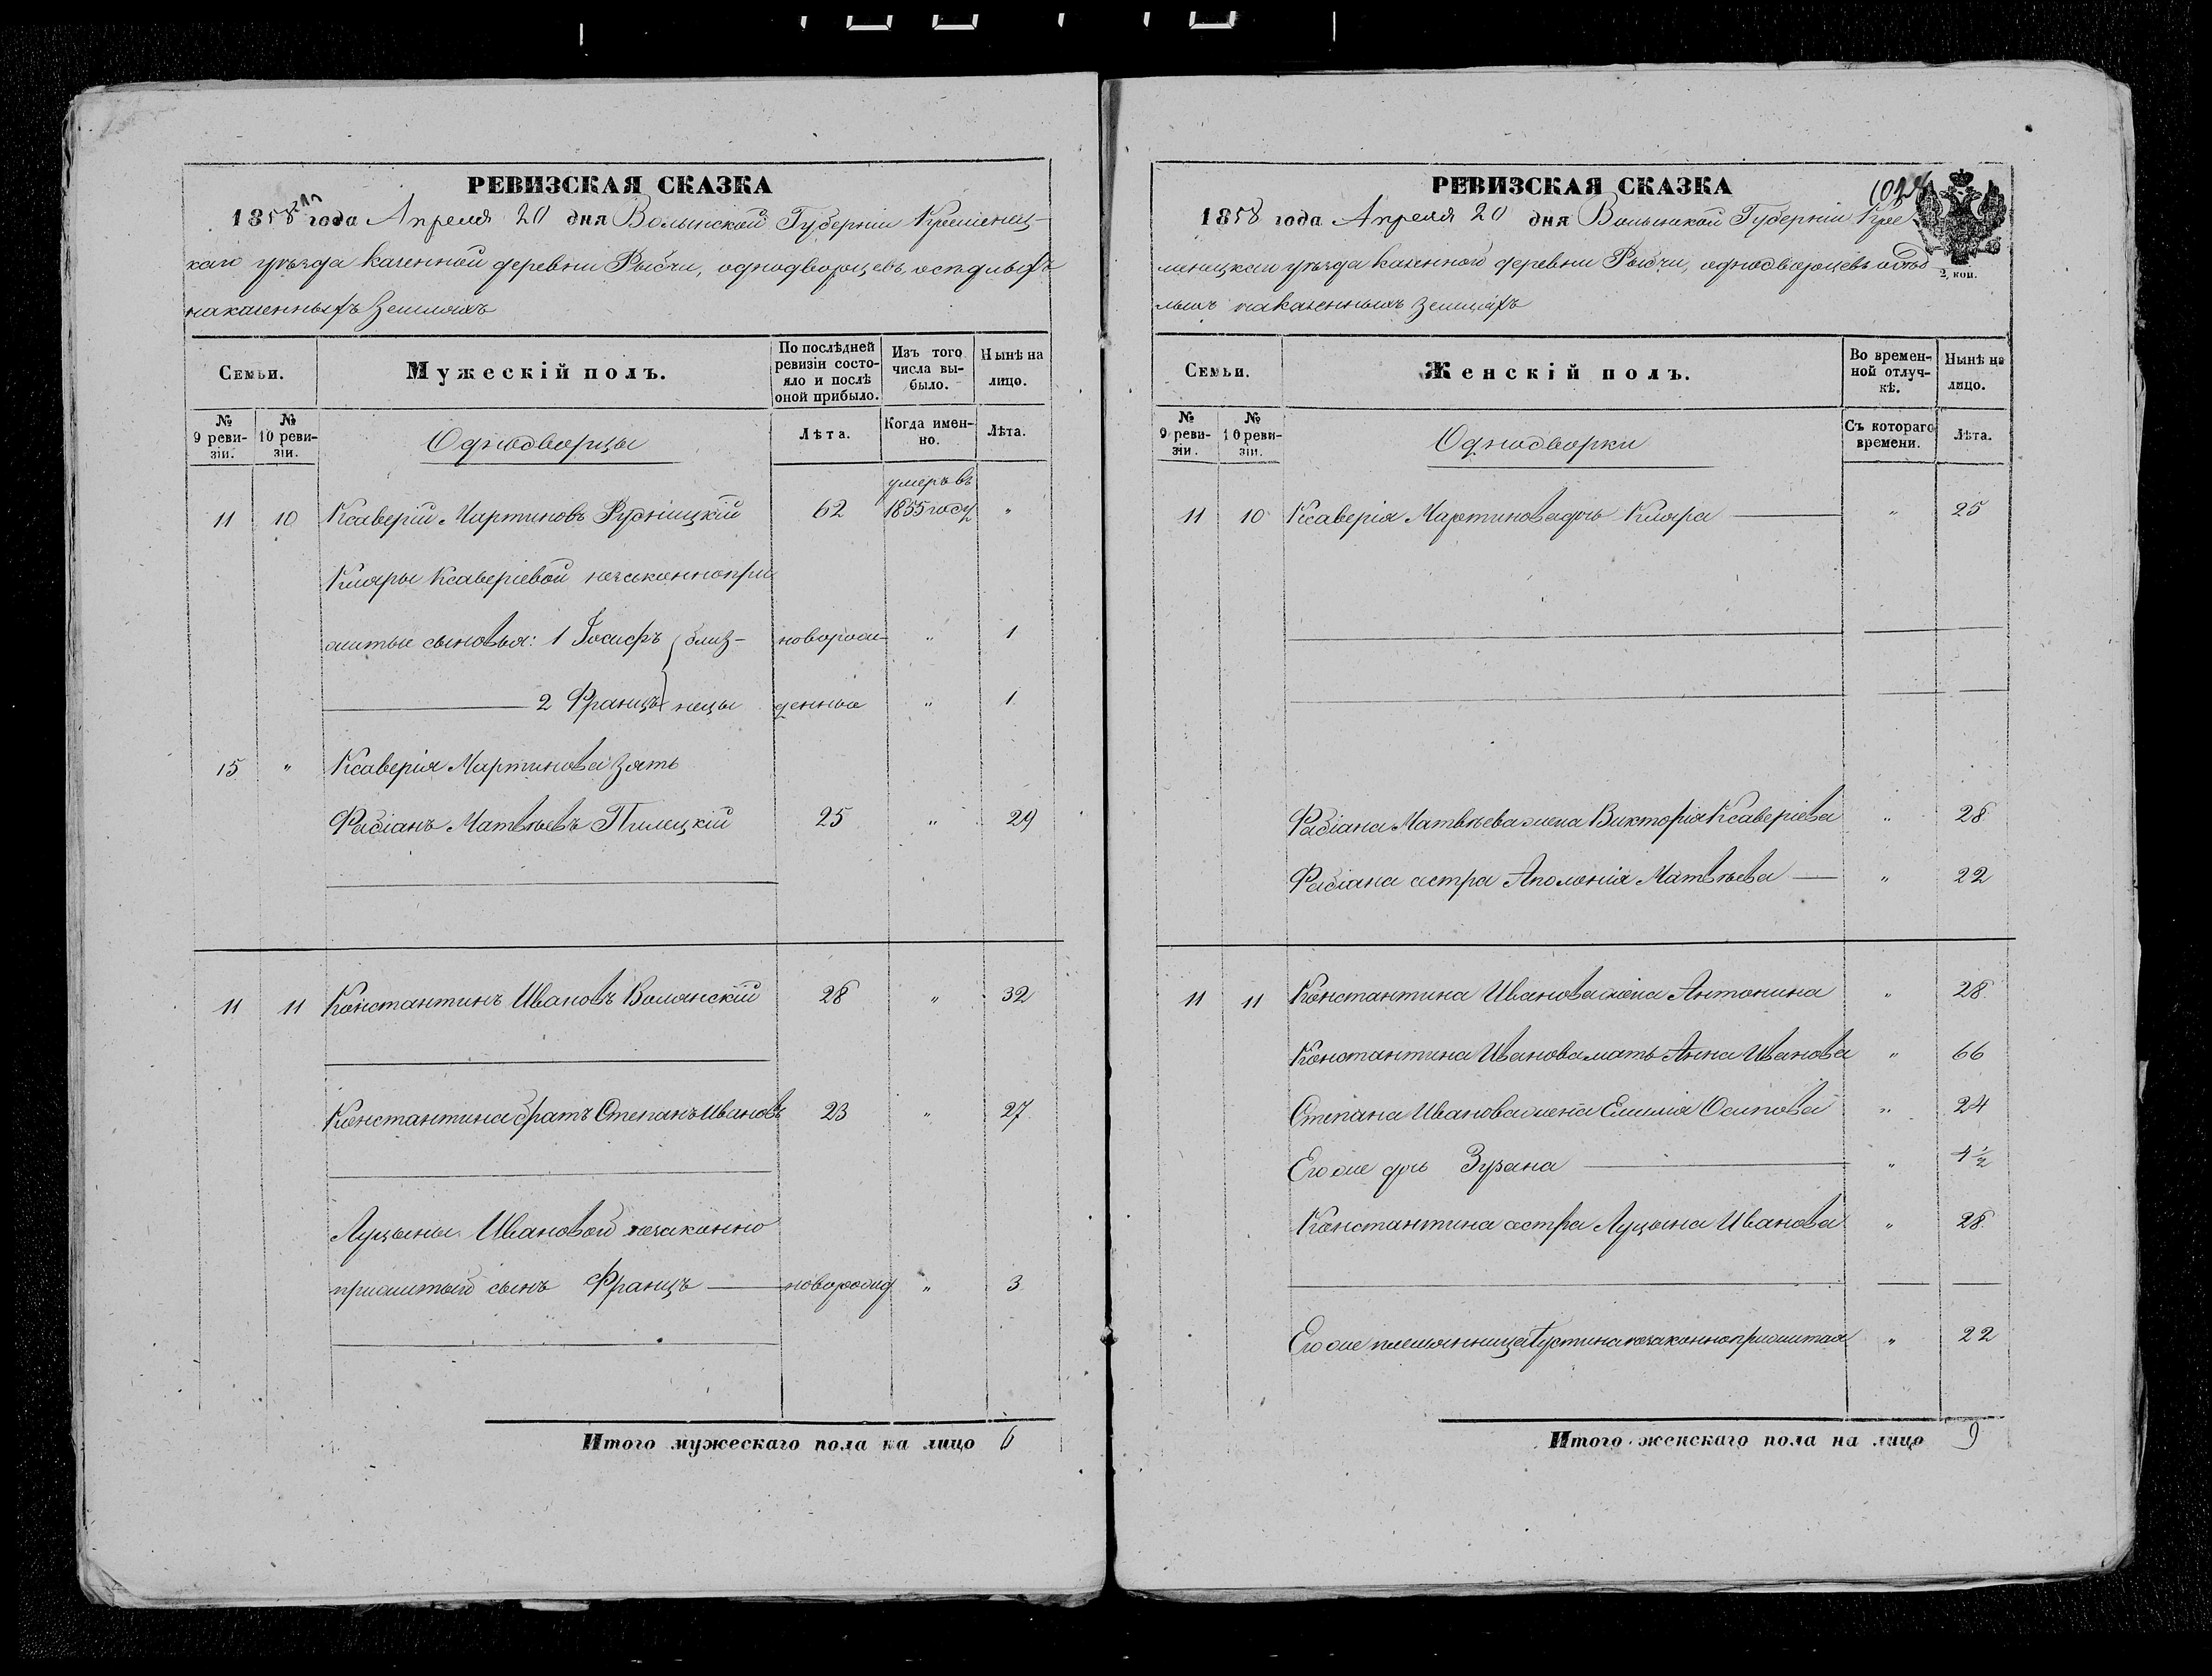 РЕВИЗСКАЯ СКАЗКА
1858го года Апреля 20 дня Волынской Губерніи Кременец-
каго уѣзда казенной деревни Рыдчи, однодворцевъ осѣдлыхъ
на казенныхъ земляхъ
Семьи.
Мужескій полъ.
По послѣдней ревизіи состо-
яло и послѣ оной прибыло.
Изъ того числа вы-
было.
Нынѣ на лицо.
№ 9 реви-
зіи.
№ 10 реви-
зіи.
Однодворцы
Лѣта.
Когда имен-
но.
Лѣта.
умеръ въ
11 10 Ксаверій Мартиновъ Рудницкій 62 1855 году "
Кляры Ксаверіевой незаконнопри
житые сыновья: 1 Іосифъ близ- новорож- " 1
2 Францъ нецы денные " 1
15 " Ксаверія Мартинова зять
Фабіанъ Матвѣевъ Пилецкій 25 " 29
11 11 Константинъ Ивановъ Волянскій 28 " 32
Константина братъ Степанъ Ивановъ 23 " 27
Луцыны Ивановой незаконно
прижитый сынъ Францъ новорожд " 3
Итого мужескаго пола на лицо 6
РЕВИЗСКАЯ СКАЗКА
1858 года Апреля 20 дня Волынской Губерніи Кре
менецкаго уѣзда казенной деревни Рыдчи, однодворцевъ осѣд
лыхъ на казенныхъ земляхъ
2 коп.
Семьи.
Женскій полъ.
Во времен-
ной отлуч-
кѣ.
Нынѣ на лицо.
№ 9 реви-
зіи.
№ 10 реви-
зіи.
Однодворки
Съ котораго времени.
Лѣта.
11 10 Ксаверія Мартинова дочь Кляра " 25
Фабіана Матвѣева жена Викторія Ксаверіева " 28
Фабіана сестра Аполонія Матвѣева " 22
11 11 Константина Иванова жена Антонина " 28
Константина Иванова мать Анна Иванова " 66
Степана Иванова жена Емилія Осипова " 24
Его же дочь Зузана " 1/2
Константина сестра Луцына Иванова " 28
Его же племянница Густина незаконноприжитая " 22
Итого женскаго пола на лицо 9